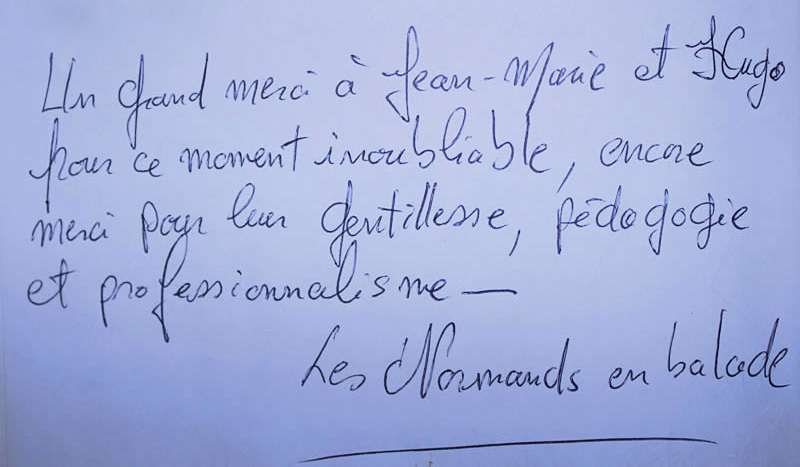 Un grand merci à Jean-Marie et Hugo
pour ce moment inoubliable, encore
merci pour leur gentillesse, pédagogie
et professionnalisme —
Les Normands en balade